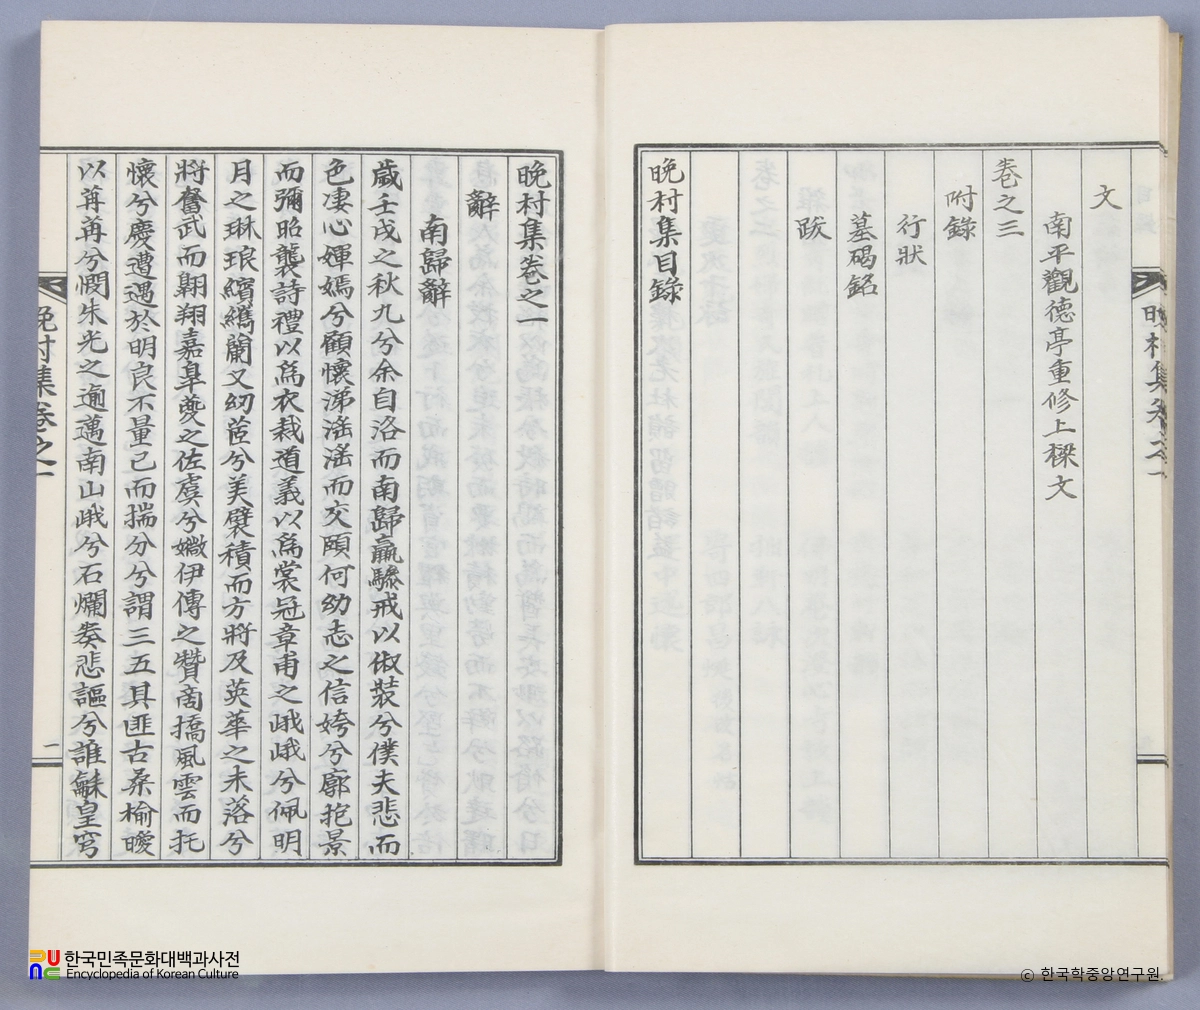 文
南平觀德亭重修上樑文
卷之三
附錄
行狀
墓碣銘
跋
晚村集目錄
晚村集卷之一
晚村集卷之一
辭
南歸辭
歲壬戌之秋九兮余自洛而南歸羸驂戒以俶裝兮僕夫悲而
色凄心嬋嫣兮顧懷涕滛滛而交頤何幼志之信姱兮廓抱景
而彌昭襲詩禮以爲衣裁道義以爲裳冠章甫之峨峨兮佩明
月之琳琅繽纗蘭又紉茝兮美襞積而方將及英華之未落兮
將奮武而翺翔嘉皐夔之佐虞兮媺伊傅之贊商撟風雲而托
懷兮慶遭遇於明良不量己而揣分兮謂三五其匪古桑榆曖
以苒苒兮憫朱光之逾邁南山峨兮石爛奏悲謳兮誰龢皇穹
晚村集卷之一
一
한국민족문화대백과사전
Encyclopedia of Korean Culture
ⓒ 한국학중앙연구원.